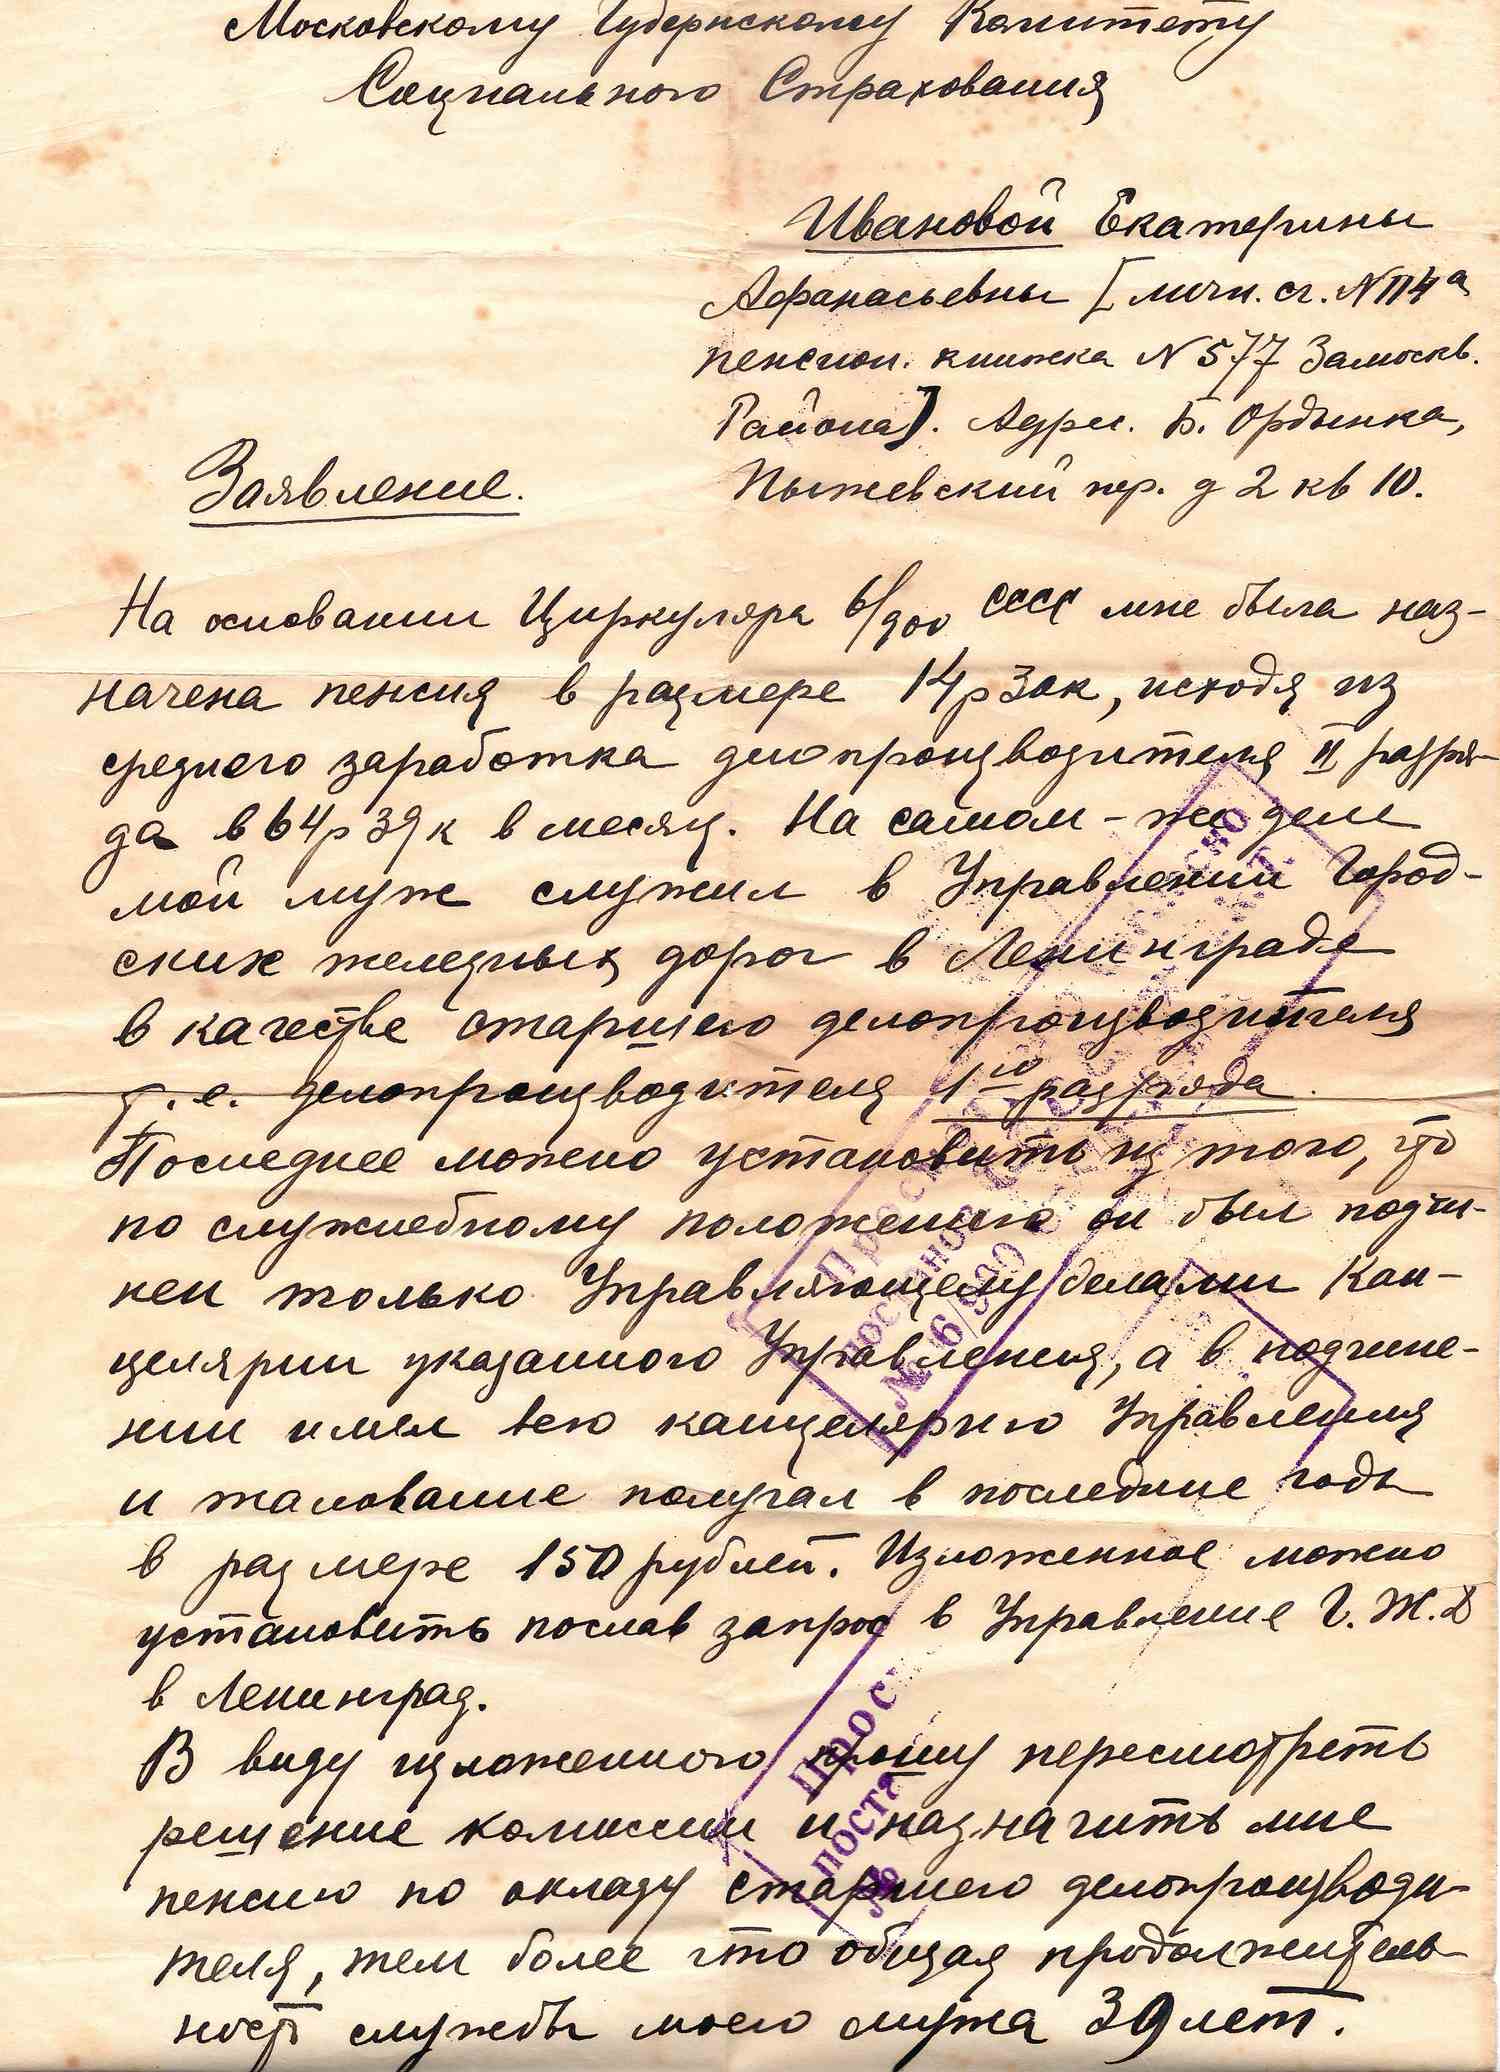 Московскому Губернскому Комитету
Социального Страхования
Ивановой Екатерины
Афанасьевны [личн. сч. N 114а
пенсион. книжка N 577 Замоскв.
Района]. Адрес. Б. Ордынка,
Пыжевский пер. д 2 кв 10.
Заявление.
На основании Циркуляра 6/900 СССС мне была наз-
начена пенсия в размере 14р30к, исходя из
среднего заработка делопроизводителя II разря-
да в 64р39к в месяц. На самом-же деле
мой муж служил в Управлении Город-
ских железных дорог в Ленинграде
в качестве старшего делопроизводителя
т.е. делопроизводителя 1го разряда.
Последнее можно установить из того, что
по служебному положению он был подчи-
нен только Управляющему делами Кан-
целярии указанного Управления, а в подчине-
нии имел всю канцелярию Управления
и жалование получал в последние годы
в размере 150 рублей. Изложенное можно
установить послав запрос в Управление Г.Ж.Д
в Ленинград.
В виду изложенного прошу пересмотреть
решение комиссии и назначить мне
пенсию по окладу старшего делопроизводи-
теля, тем более что общая продолжитель-
ность службы моего мужа 39 лет.
№ 6/900
Прос
поста
№